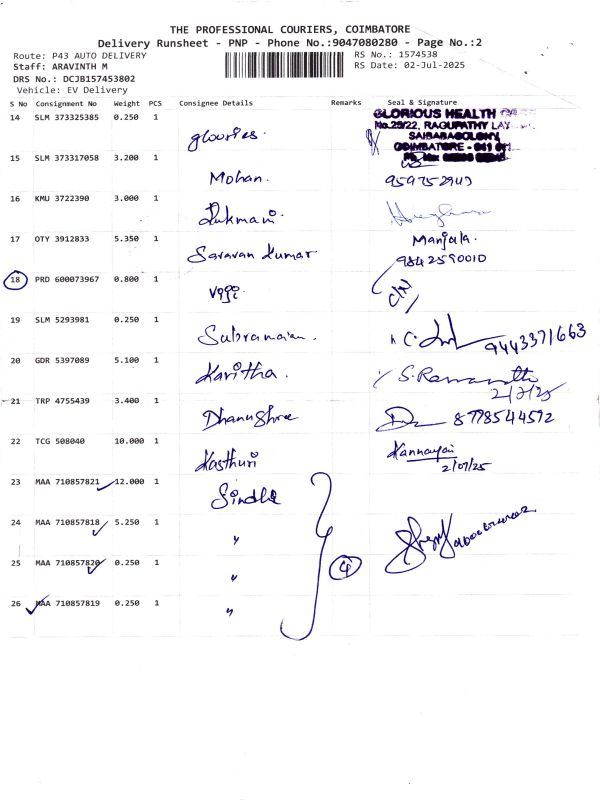 THE PROFESSIONAL COURIERS, COIMBATORE
Delivery Runsheet - PNP - Phone No.:9047080280 - Page No.:2
Route: P43 AUTO DELIVERY RS No.: 1574538
Staff: ARAVINTH M RS Date: 02-Jul-2025
DRS No.: DCJB157453802
Vehicle: EV Delivery
S No Consignment No Weight PCS Consignee Details Remarks Seal & Signature
14 SLM 373325385 0.250 1 glouries. GLORIOUS HEALTH
No.29/22, RAGUPATHY LAY
SAIBABACOLONY,
COIMBATORE - 641 011
15 SLM 373317058 3.200 1 Mohan.
16 KMU 3722390 3.000 1 Rukmani.
17 OTY 3912833 5.350 1 Saravan Kumar Manjula.
9842550010
18 PRD 600073967 0.800 1
19 SLM 5293981 0.250 1 Subramaian. 9443371663
20 GDR 5397089 5.100 1 Kavitha.
2/7/25
21 TRP 4755439 3.400 1 Dhanushree 8778544572
22 TCG 508040 10.000 1 Kasthuri Kannayai
2/07/25
23 MAA 710857821 12.000 1 Sindhu
24 MAA 710857818 5.250 1 "
25 MAA 710857820 0.250 1 " 4
26 MAA 710857819 0.250 1 "